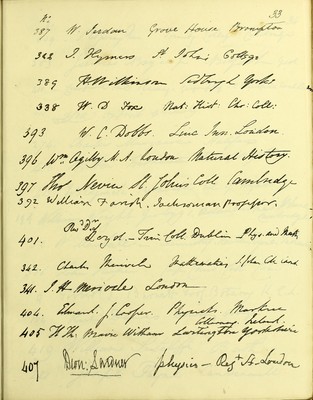 53
No.
387 W Jerdan Grove House Brompton
362 J. Hymers St John's College
389 H. Wilkinson Sedbergh Yorks
338 W. D. Fox Nat: Hist: Chr: Coll:
393 W. C. Dobbs Linc Inn. London
396 Wm Ogilby M. A. London Natural History.
397 Thos Nevin St. John's Coll Cambridge
392 William Farish. Jacksonian Professor.
Revd Dr
401. Lloyd - Trin: Coll. Dublin - Phys. and Math
342. Charles Merivale Mathematics St John
341. J. H. Merivale London
404. Edward J. Cooper. Physicks. Markree
Collooney Ireland.
405 H. Th. Marie Witham Lartington Yorkshire
407 Dion: Lardner physics - Regt St. London